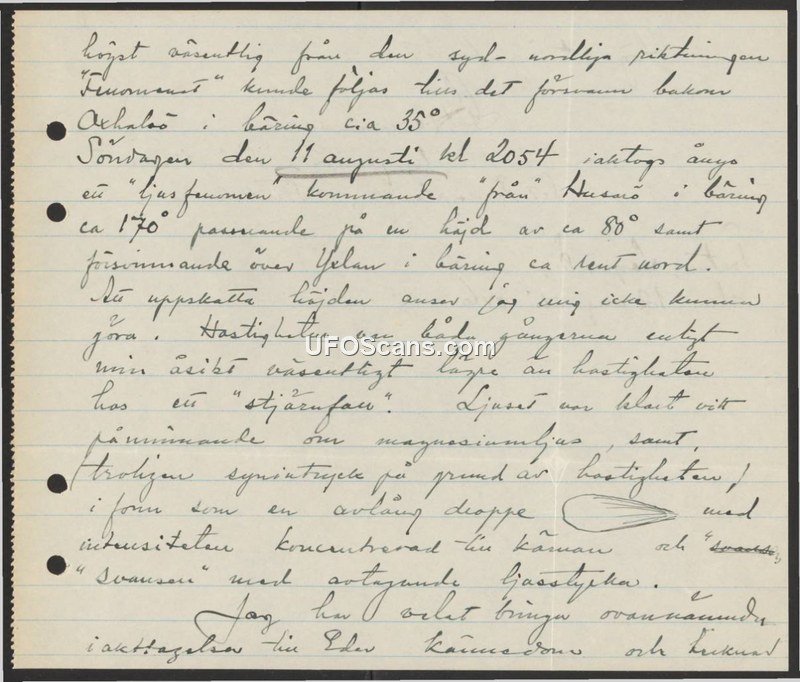 högst väsentlig från den syd-nordliga riktningen
"Fenomenet" kunde följas tills det försvann bakom
Oxhalsö i bäring cia 35°
Söndagen den 11 augusti kl 2054 iaktogs ånyo
ett "ljusfenomen" kommande "från" Husarö i bäring
ca 170° passerande på en höjd av ca 80° samt
försvinnande över Yxlan i bäring ca rent nord.
Att uppskatta höjden anser jag mig icke kunna
göra. Hastigheten var båda gångerna enligt
min åsikt väsentligt lägre än hastigheten
hos ett "stjärnfall". Ljuset var klart vitt
påminnande om magnesiumljus, samt,
(troligen synintryck på grund av hastigheten)
i form som en avlång droppe med
intensiteten koncentrerad till kärnan och "svansen"
"svansen" med avtagande ljusstyrka.
Jag har velat bringa ovannämnda
iakttagelser till Eder kännedom och
UFOScans.com